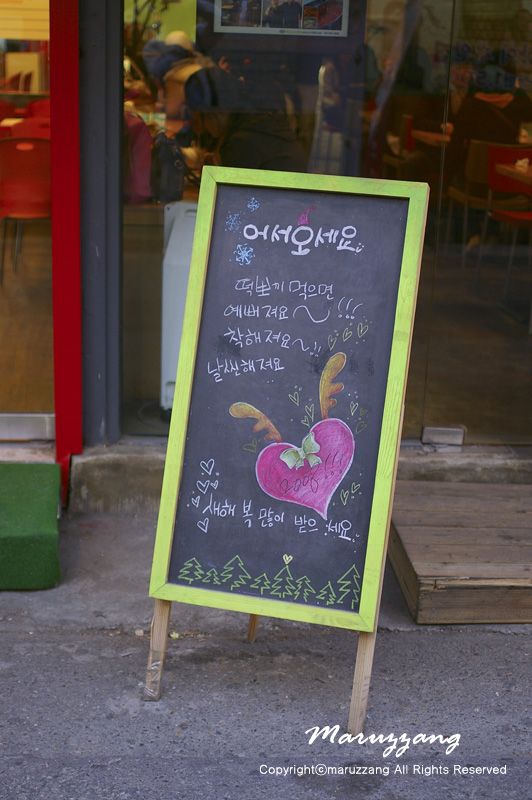 어서오세요
떡뽀끼 먹으면
예뻐져요~!!!
착해져요~!!
날씬해져요
새해 복 많이 받으세요
Maruzzang
Copyright©maruzzang All Rights Reserved